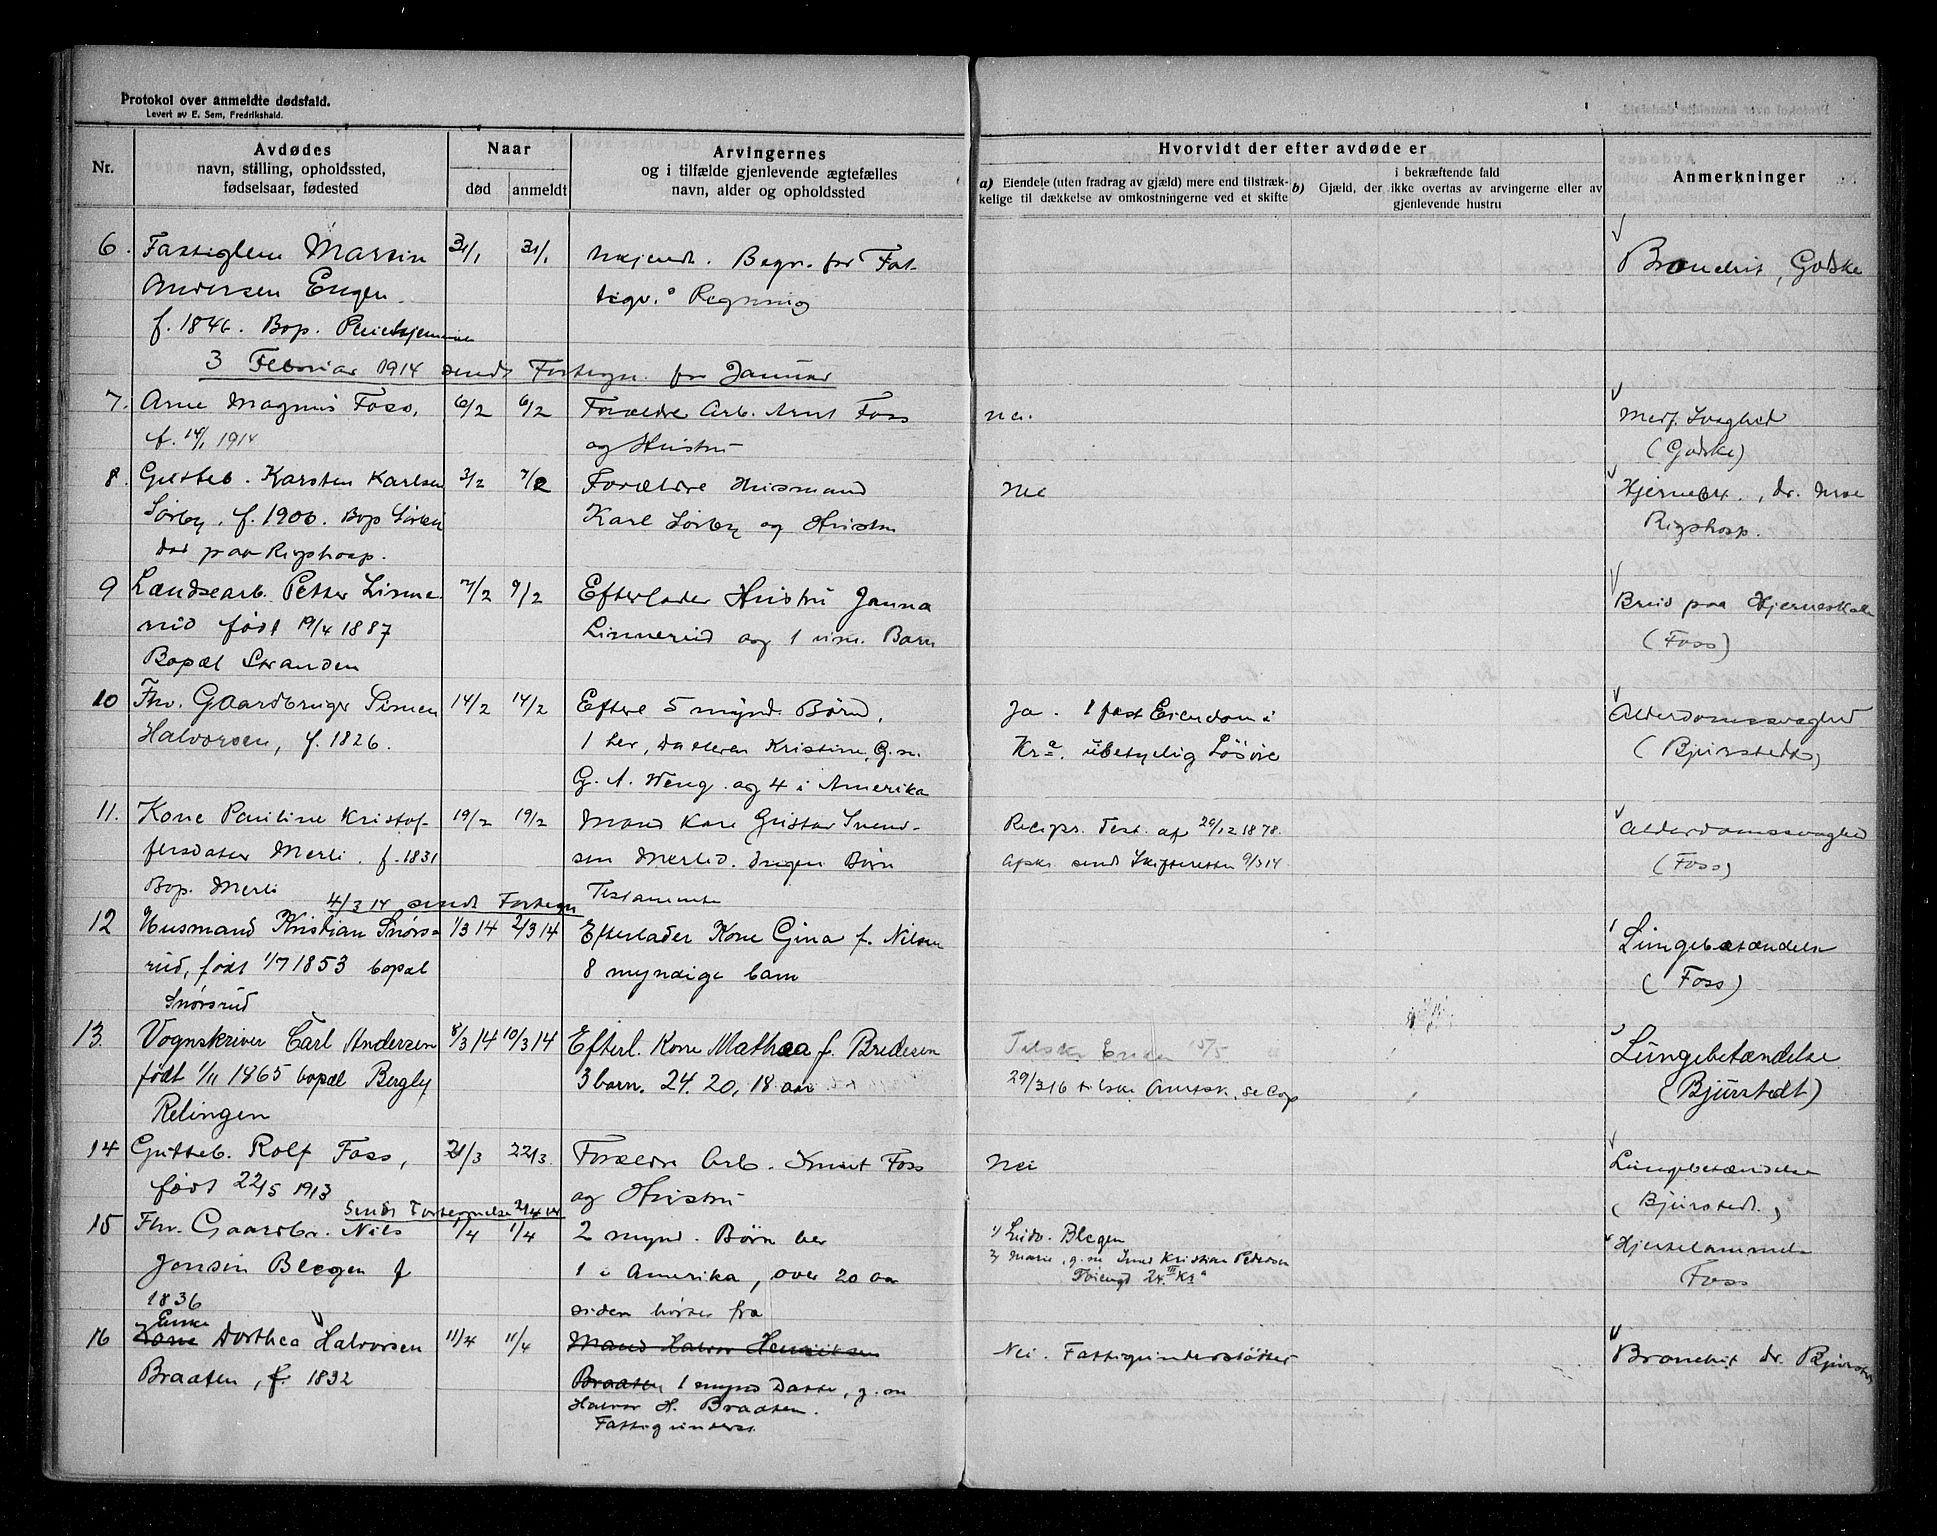 Protokol over anmeldte dødsfald.
Levert av E. Sem, Fredrikshald.
Nr.
Avdødes
navn, stilling, opholdssted,
fødselsaar, fødested
Naar
død
anmeldt
Arvingernes
og i tilfælde gjenlevende ægtefælles
navn, alder og opholdssted
Hvorvidt der efter avdøde er
a) Eiendele (uten fradrag av gjæld) mere end tilstræk-
kelige til dækkelse av omkostningerne ved et skifte
b) Gjæld, der
i bekræftende fald
ikke overtas av arvingerne eller av
gjenlevende hustru
Anmerkninger
6. Fattiglem Martin 31/1 31/1 Ukjendt. Begr. for Fat- Bronchit, Godske
Andersen Engen. tigv.s Regning
f. 1846. Bop. Pleiehjemmet
3 Februar 1914 sendt Fortegn. for Januar
7. Arne Magnus Foss, 6/2 6/2 Forældre Arb. Arnt Foss nei. Medf. Svaghed
f. 14/1 1914 og Hustru (Godske)
8. Gutteb. Karsten Karlsen 3/2 7/2 Forældre Husmand Nei , dr. Moe
Sørby, f. 1906. Bop Sørby Karl Sørby og Hustru Rigshosp.
død paa Rigshosp.
9 Petter Linne- 7/2 9/2 Efterlader Hustru Janna Brud paa Hjerneskallen
rud født 19/4 1887 Linnerud og 1 um. Barn (Foss)
Bopæl Stranden
10 Fhv. Gaardbruger Simen 14/2 14/2 Efterl 5 mynd. Børn, Ja. 1 fast Eiendom i Alderdomssvaghed
Halvorsen, f. 1826. 1 her, datteren Kristine, G.m. Kra. ubetydelig Løsøre (Bjurstedt)
G. A. Weng og 4 i Amerika
11. Kone Pauline Kristof- 19/2 19/2 Mand Kare Gustav Svend- Recipr. Test. af 12 1878. Alderdomssvaghed
fersdater Merli. f. 1831 sen Merlid. Ingen Børn Afskr. sendt Skifteretten 9/3 14. (Foss)
Bop. Merli Testamente
4/3 14 sendt Fortegn
12 Husmand Kristian Snørs- 1/3 14 2/3 14 Efterlader Kone Gina f. Nilsen Lungebetændelse
rud, født 1/7 1853 bopæl 8 myndige barn (Foss)
Snørsrud
13. Vognskriver Carl Andersen 8/3 14 10/3 14 Efterl. Kone Mathea f. Bredesen Lungebetændelse
født 1/11 1865 bopæl Bergly 3 barn. 24. 20, 18 aar 29/3 16 tilskr. (Bjurstedt)
Relingen
14 Gutteb. Rolf Foss, 21/3 22/3 Forældre Arb. Knut Foss Nei Lungebetændelse
født 22/5 1913 og Hustru (Bjurstedt.)
Sendt Fortegnelse
15 Fhv. Gaardbr. Nils 1/4 1/4 2 mynd. Børn her 1) Ludv. Blegen Hjertelammelse
Jensen Blegen f 1 i Amerika, over 20 aar 2) Marie, g.m Kristian Pedersen Foss
1836 siden hørtes fra
Enke
16 Kone Dorthea Halvorsen 11/4 11/4 Mand Halvor Henriksen Nei. Fattigunderstøttet Bronchit dr. Bjurstedt
Braaten, f. 1832 Braaten 1 mynd Datter, g. m
Halvor H. Braaten.
Fattigunderst.